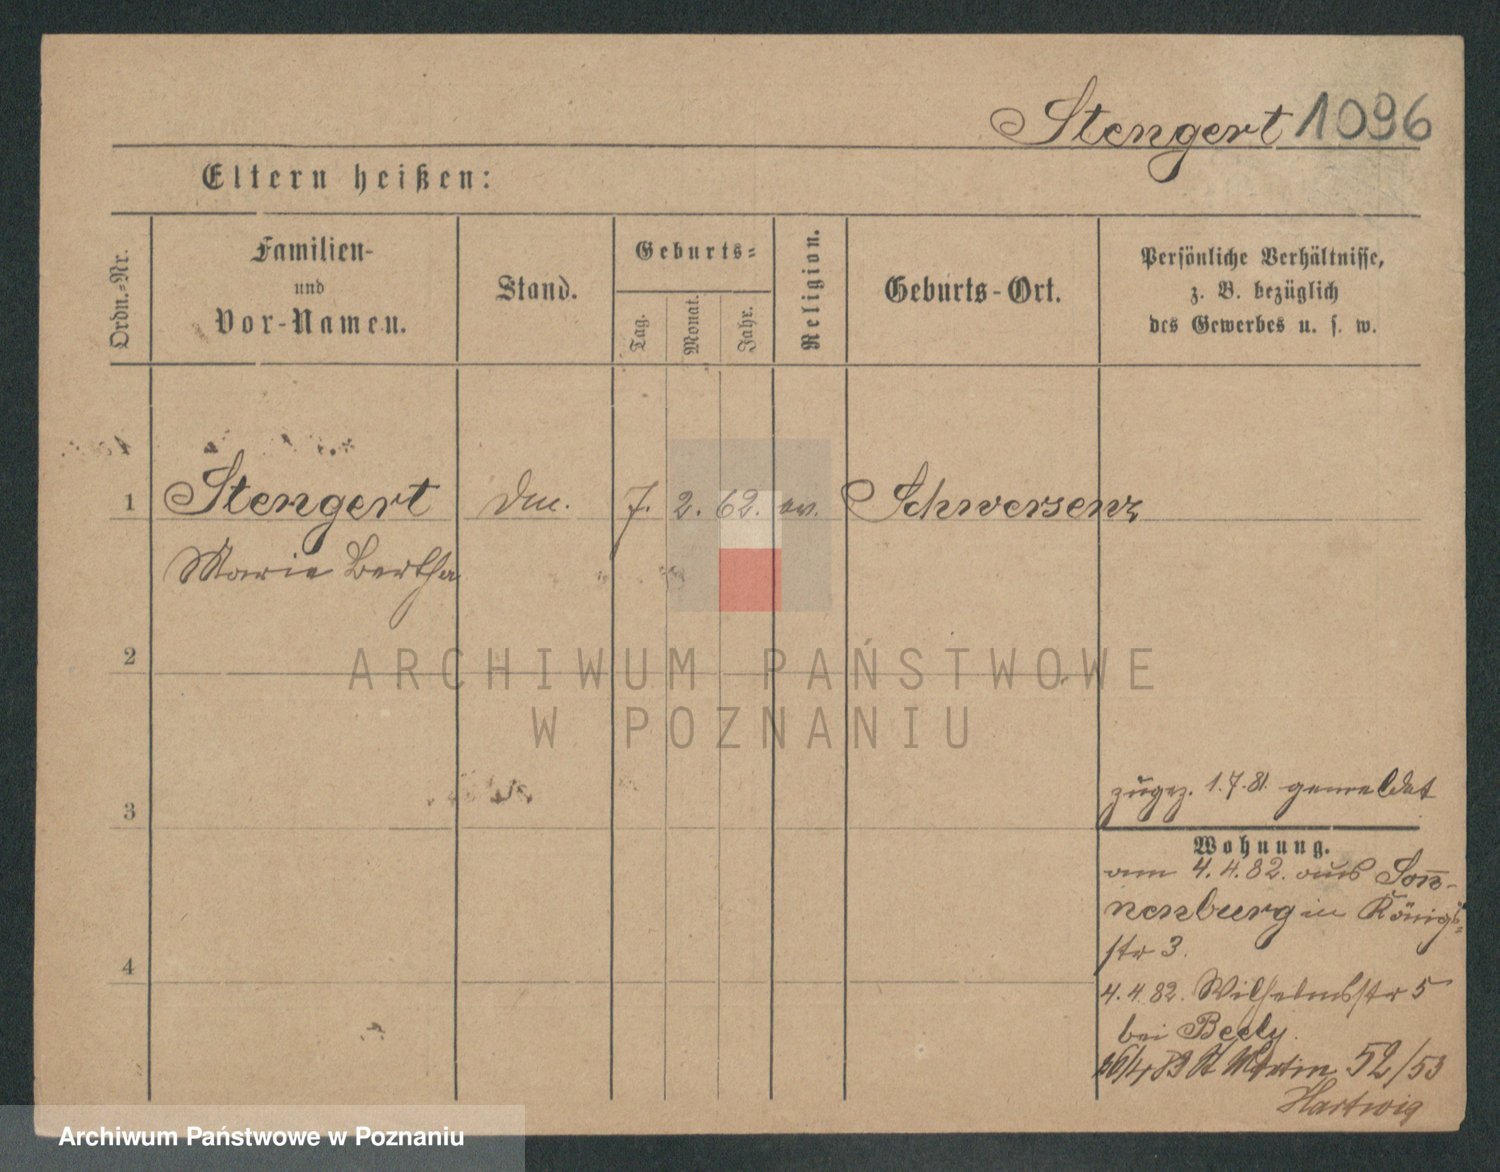 Stengert 1096
Eltern heißen:
Ordn.-Nr.
Familien-
und
Vor-Namen.
Stand.
Geburts-
Tag.
Monat.
Jahr.
Religion.
Geburts-Ort.
Persönliche Verhältnisse,
z. B. bezüglich
des Gewerbes u. s. w.
1 Stengert 7. 2. 62. ev. Schwersenz
Marie Bertha
2
ARCHIWUM PAŃSTWOWE
W POZNANIU
3
zugez. 1.7.81. gemeldet
Wohnung.
am 4.4.82. aus Son-
nenburg in Königs-
str 3.
4
4.4.82. Wilhelmsstr 5
bei Beely
St Martin 52/53
Hartwig
Archiwum Państwowe w Poznaniu